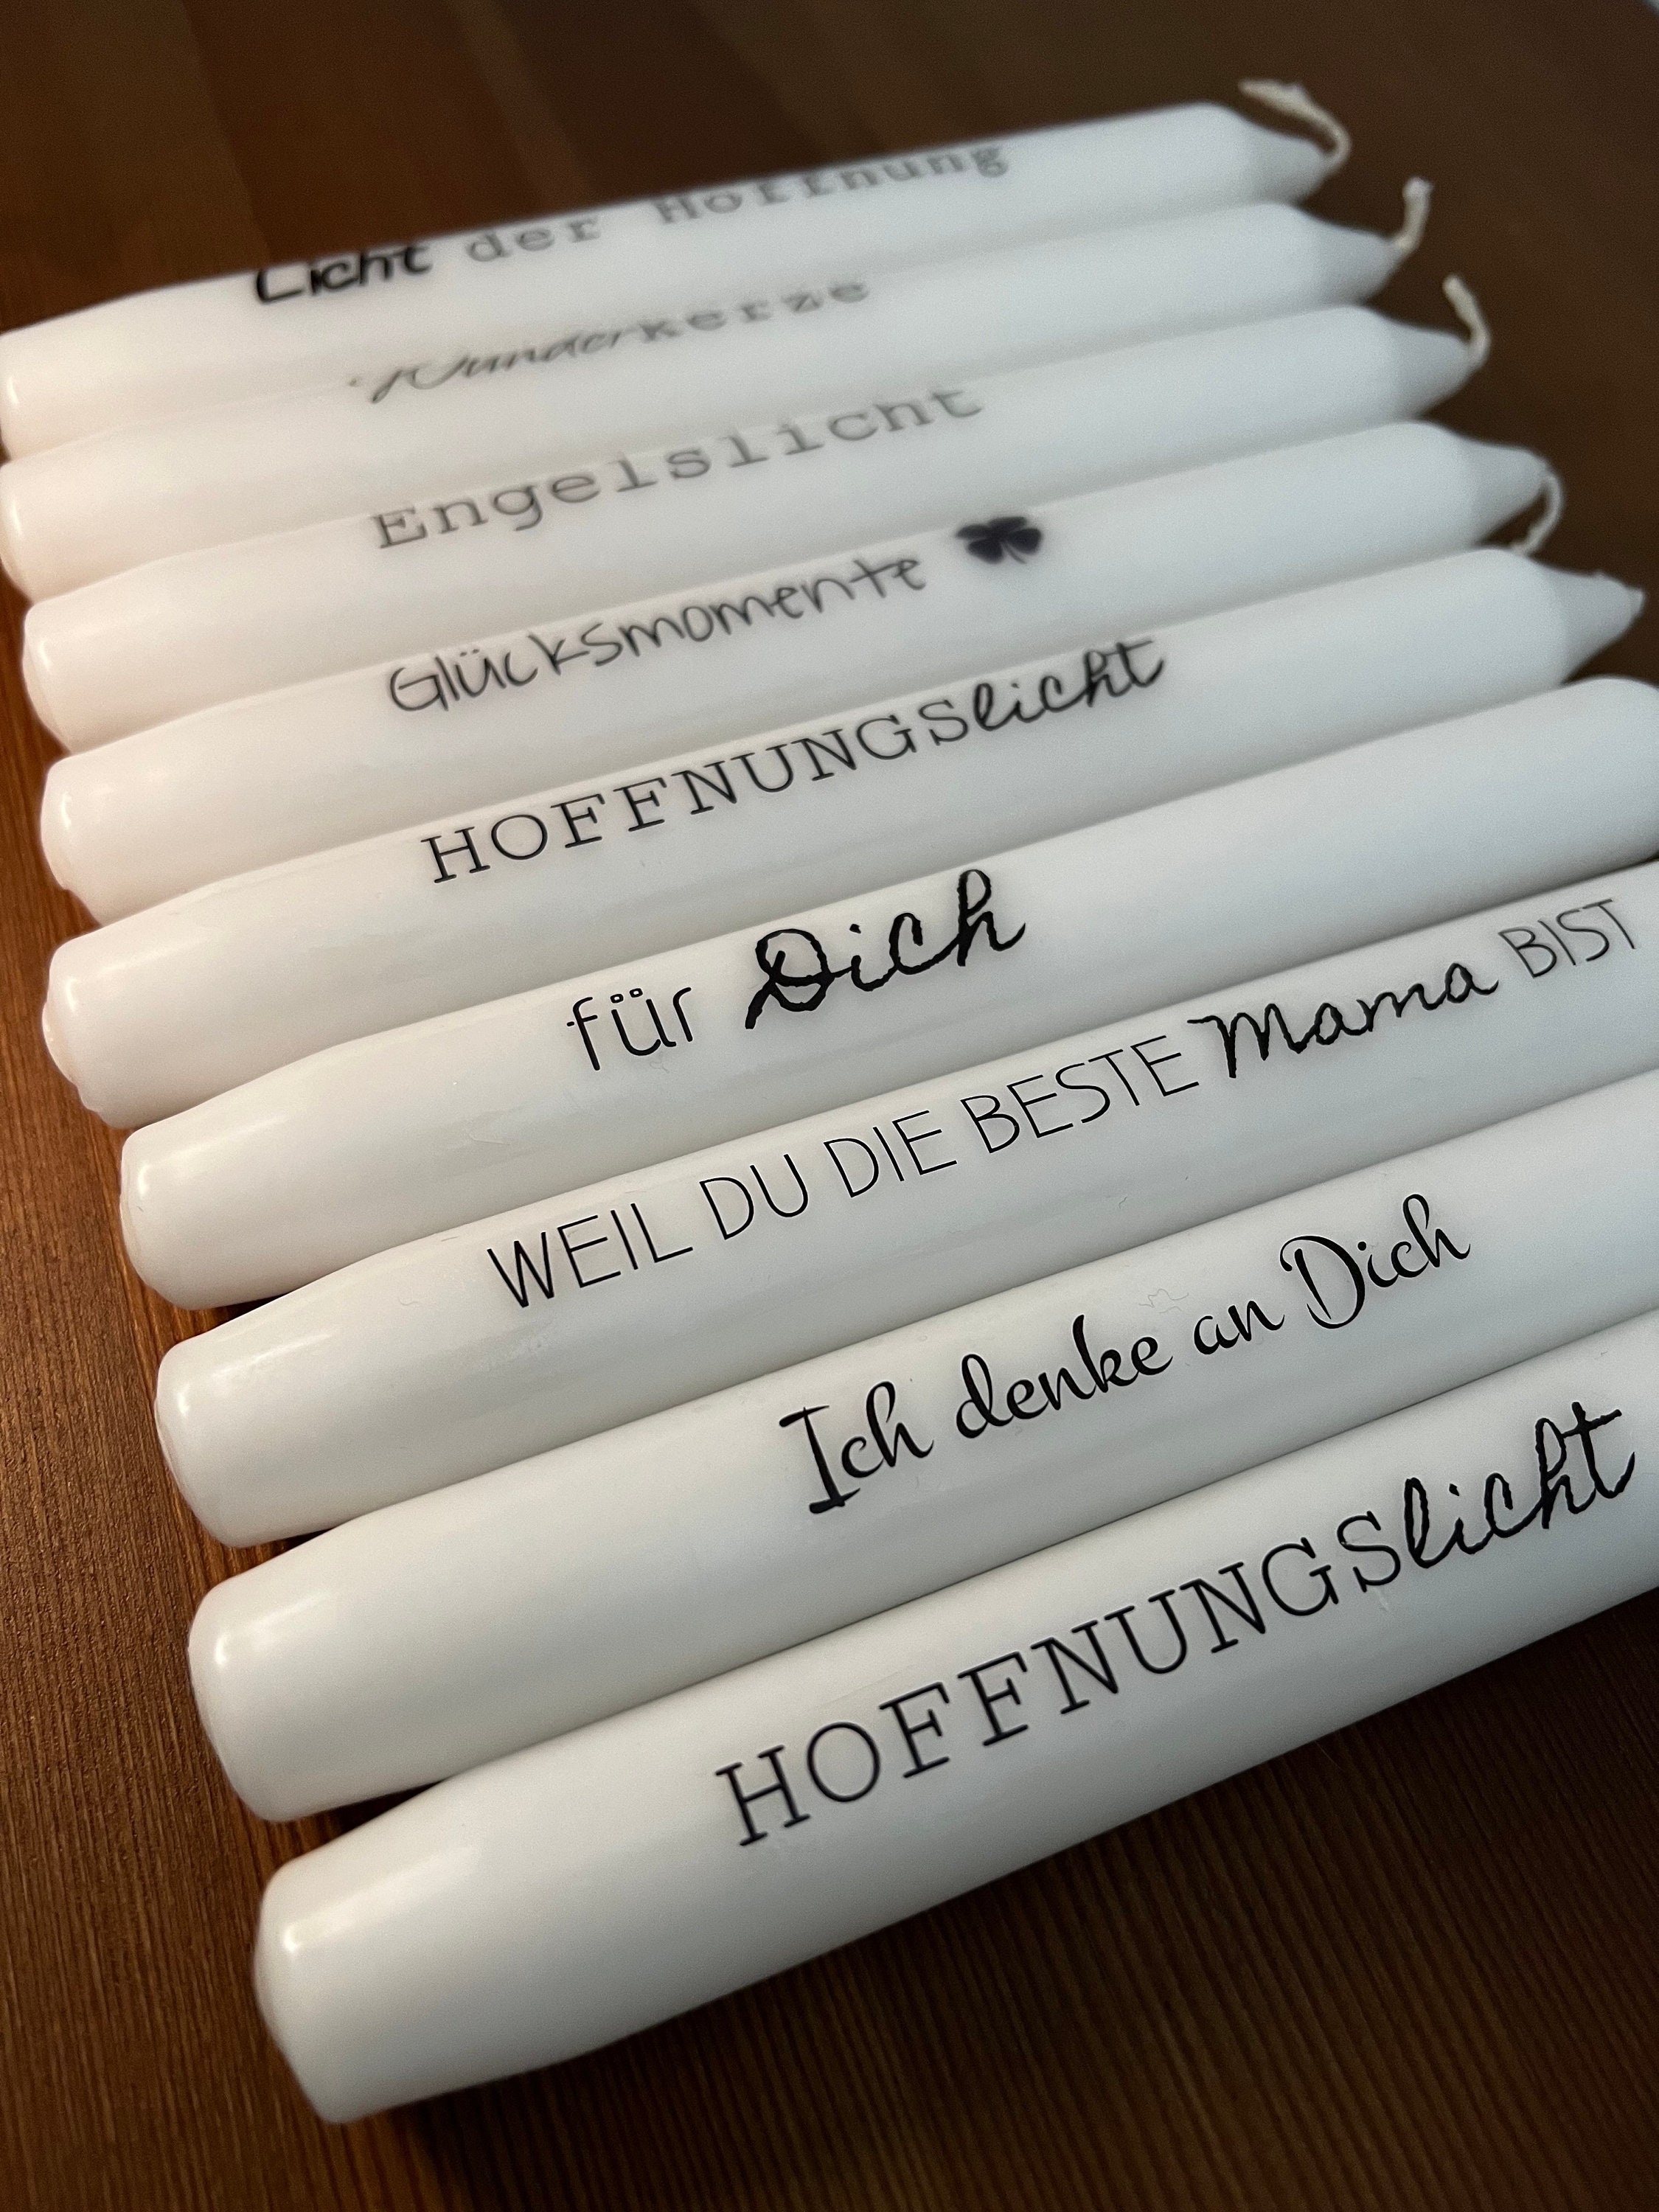 Licht der Hoffnung
Wunderkerze
Engelslicht
Glücksmomente
HOFFNUNGSlicht
für Dich
WEIL DU DIE BESTE Mama BIST
Ich denke an Dich
HOFFNUNGSlicht